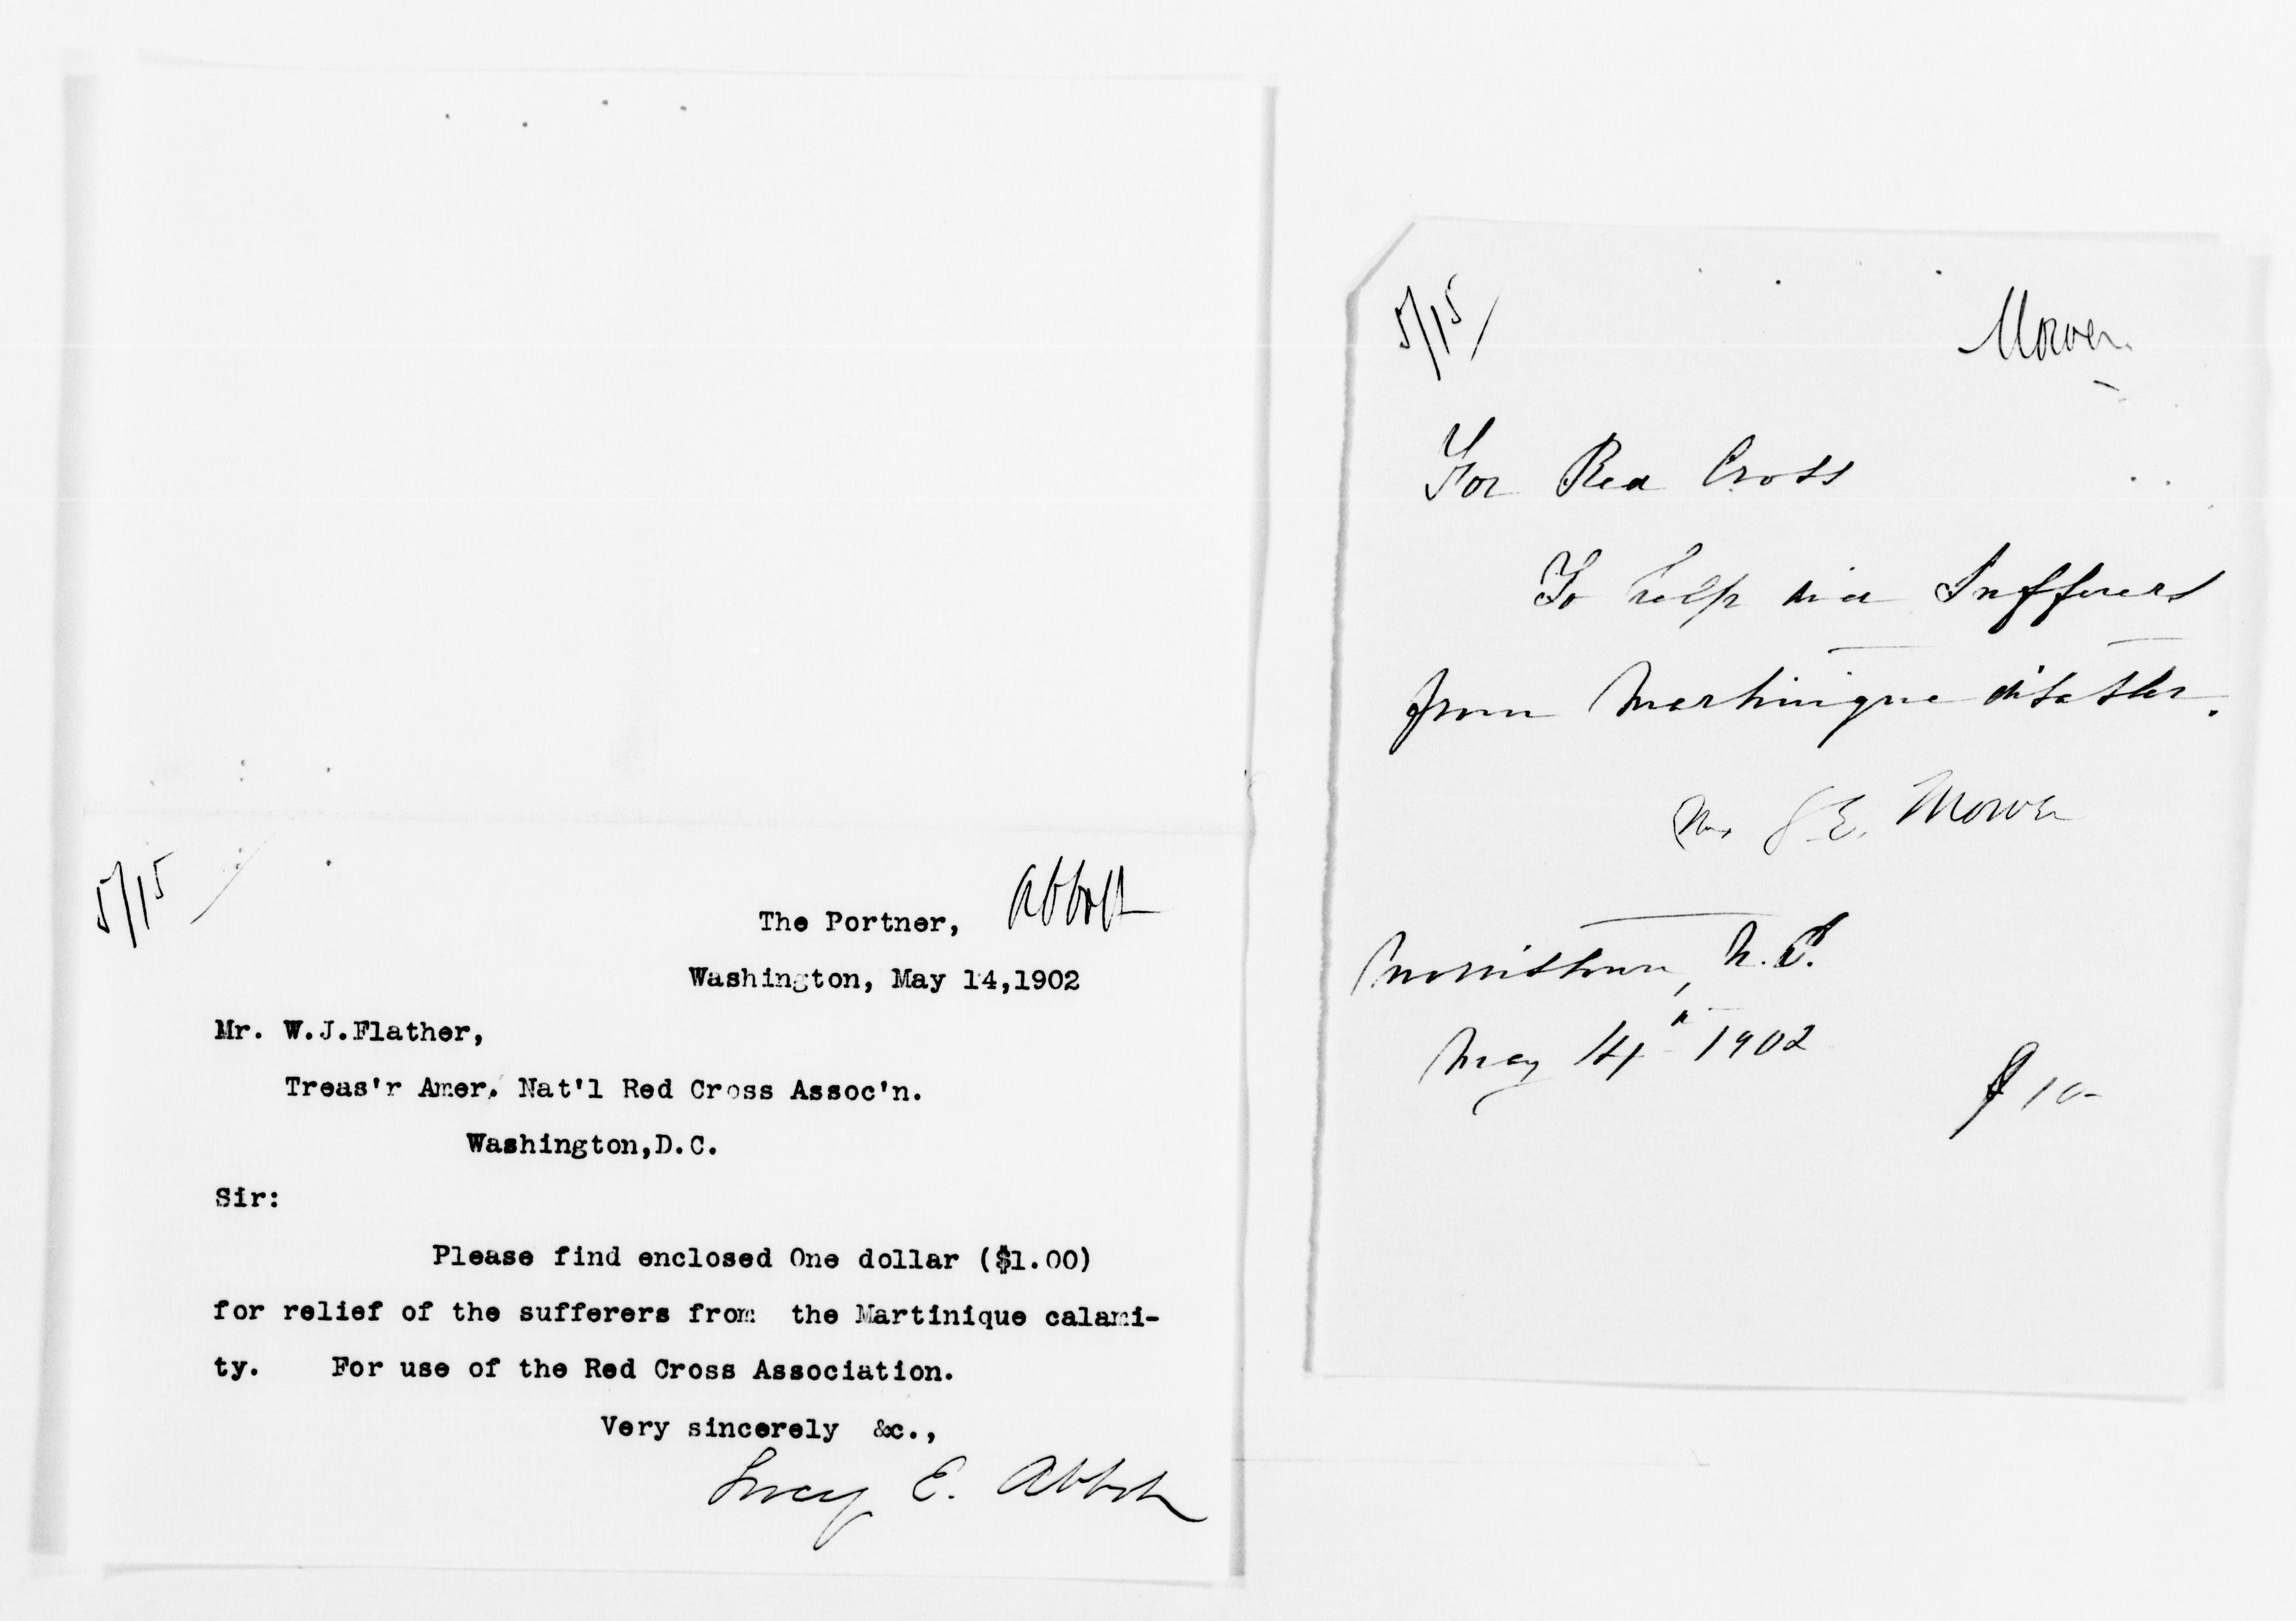 5/15
Abbott
The Portner,
Washington, May 14,1902
Mr. W.J.Flather,
Treas'r Amer. Nat'l Red Cross Assoc'n.
Washington,D.C.
Sir:
Please find enclosed One dollar ($1.00)
for relief of the sufferers from the Martinique calami-
ty. For use of the Red Cross Association.
Very sincerely &c.,
Lucy E. Abbott
5/15
Mower
For Red Cross
To help the Sufferers
from Martinique disaster.
E. Mower
Morristown, N.J.
May 14th 1902
$10-